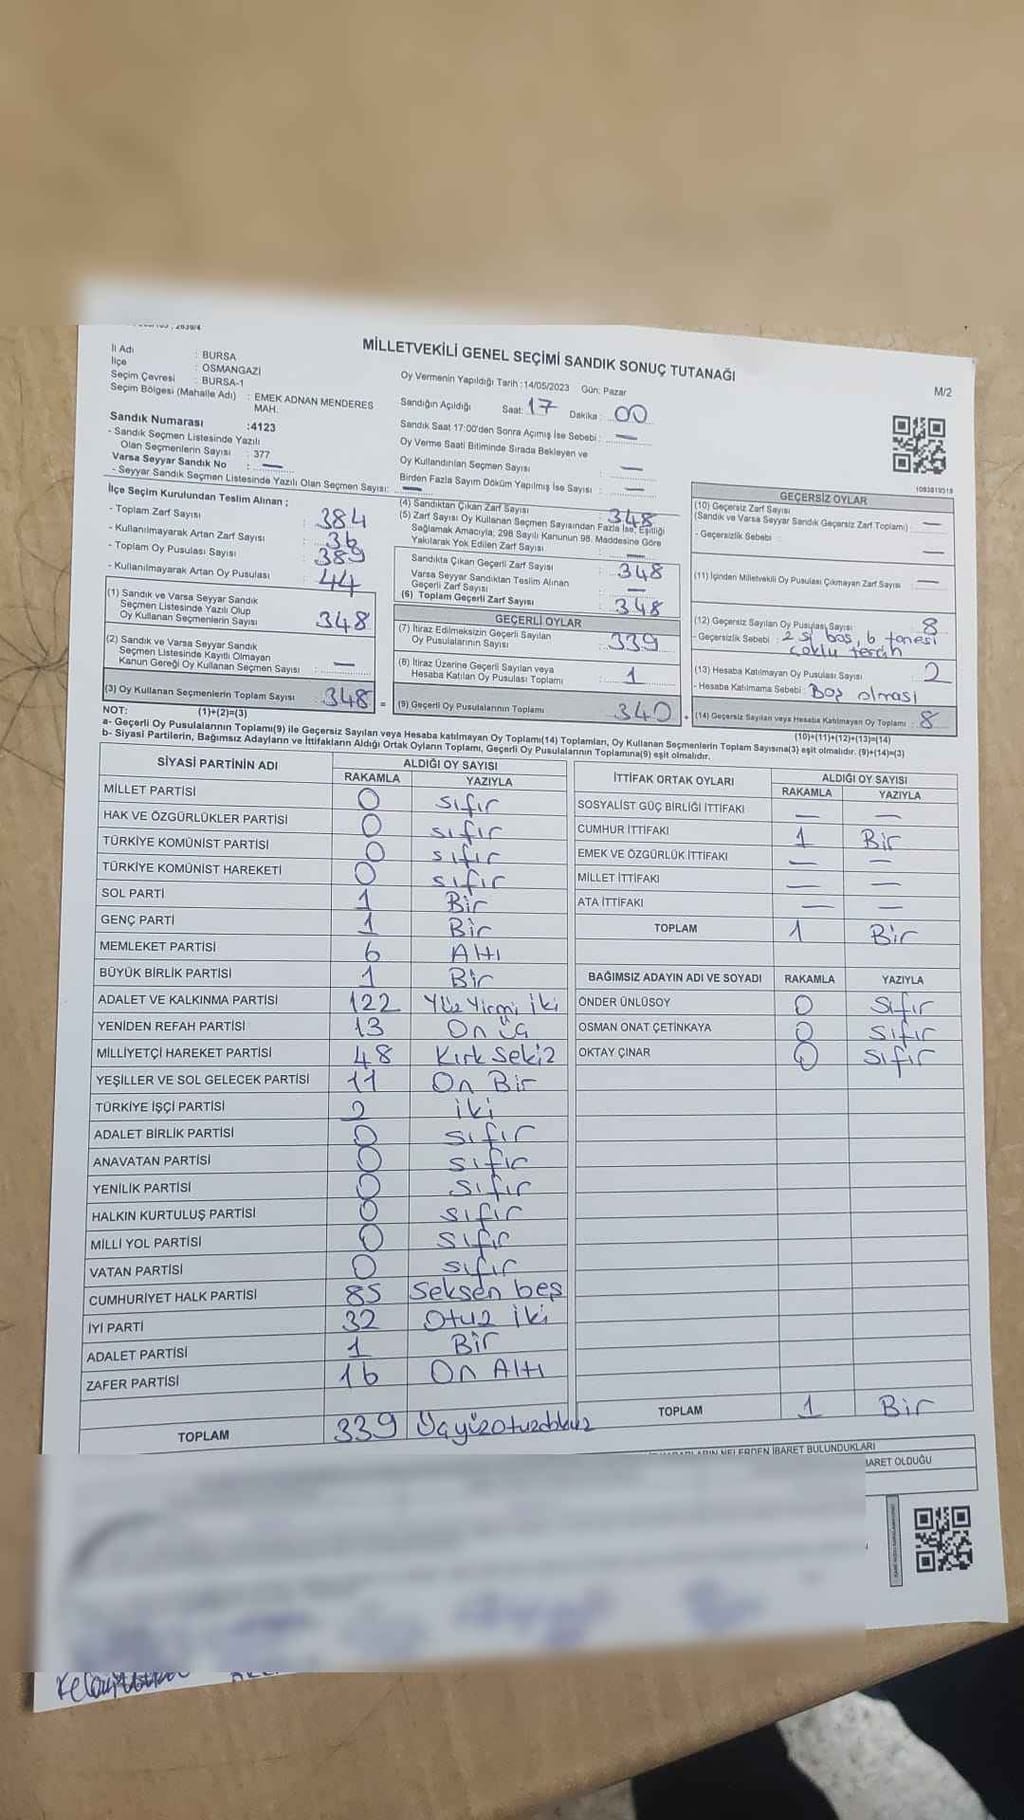 MİLLETVEKİLİ GENEL SEÇİMİ SANDIK SONUÇ TUTANAĞI
M/2
İl Adı : BURSA
İlçe : OSMANGAZİ
Seçim Çevresi : BURSA-1
Seçim Bölgesi (Mahalle Adı) : EMEK ADNAN MENDERES
MAH.
Sandık Numarası :4123
- Sandık Seçmen Listesinde Yazılı
Olan Seçmenlerin Sayısı : 377
Varsa Seyyar Sandık No : —
- Seyyar Sandık Seçmen Listesinde Yazılı Olan Seçmen Sayısı: —
Oy Vermenin Yapıldığı Tarih :14/05/2023 Gün: Pazar
Sandığın Açıldığı Saat: 17 Dakika : 00
Sandık Saat 17:00'den Sonra Açılmış İse Sebebi : —
Oy Verme Saati Bitiminde Sırada Bekleyen ve
Oy Kullandırılan Seçmen Sayısı : —
Birden Fazla Sayım Döküm Yapılmış İse Sayısı : —
1083819318
İlçe Seçim Kurulundan Teslim Alınan ;
- Toplam Zarf Sayısı : 384
- Kullanılmayarak Artan Zarf Sayısı : 36
- Toplam Oy Pusulası Sayısı : 389
- Kullanılmayarak Artan Oy Pusulası : 44
(1) Sandık ve Varsa Seyyar Sandık
Seçmen Listesinde Yazılı Olup
Oy Kullanan Seçmenlerin Sayısı : 348
(2) Sandık ve Varsa Seyyar Sandık
Seçmen Listesinde Kayıtlı Olmayan
Kanun Gereği Oy Kullanan Seçmen Sayısı : —
(3) Oy Kullanan Seçmenlerin Toplam Sayısı : 348
(1)+(2)=(3)
(4) Sandıktan Çıkan Zarf Sayısı : 348
(5) Zarf Sayısı Oy Kullanan Seçmen Sayısından Fazla İse, Eşitliği
Sağlamak Amacıyla; 298 Sayılı Kanunun 98. Maddesine Göre
Yakılarak Yok Edilen Zarf Sayısı : —
Sandıkta Çıkan Geçerli Zarf Sayısı : 348
Varsa Seyyar Sandıktan Teslim Alınan
Geçerli Zarf Sayısı : —
(6) Toplam Geçerli Zarf Sayısı : 348
GEÇERLİ OYLAR
(7) İtiraz Edilmeksizin Geçerli Sayılan
Oy Pusulalarının Sayısı : 339
(8) İtiraz Üzerine Geçerli Sayılan veya
Hesaba Katılan Oy Pusulası Toplamı : 1
= (9) Geçerli Oy Pusulalarının Toplamı : 340
GEÇERSİZ OYLAR
(10) Geçersiz Zarf Sayısı
(Sandık ve Varsa Seyyar Sandık Geçersiz Zarf Toplamı) : —
- Geçersizlik Sebebi : —
(11) İçinden Milletvekili Oy Pusulası Çıkmayan Zarf Sayısı : —
(12) Geçersiz Sayılan Oy Pusulası Sayısı : 8
- Geçersizlik Sebebi : 2 si boş, 6 tanesi
çoklu tercih
(13) Hesaba Katılmayan Oy Pusulası Sayısı : 2
- Hesaba Katılmama Sebebi : Boş olması
+ (14) Geçersiz Sayılan veya Hesaba Katılmayan Oy Toplamı : 8
(10)+(11)+(12)+(13)=(14)
NOT:
a- Geçerli Oy Pusulalarının Toplamı(9) ile Geçersiz Sayılan veya Hesaba katılmayan Oy Toplamı(14) Toplamları, Oy Kullanan Seçmenlerin Toplam Sayısına(3) eşit olmalıdır. (9)+(14)=(3)
b- Siyasi Partilerin, Bağımsız Adayların ve İttifakların Aldığı Oyların Toplamı, Geçerli Oy Pusulalarının Toplamına(9) eşit olmalıdır.
SİYASİ PARTİNİN ADI ALDIĞI OY SAYISI
RAKAMLA YAZIYLA
MİLLET PARTİSİ 0 sıfır
HAK VE ÖZGÜRLÜKLER PARTİSİ 0 sıfır
TÜRKİYE KOMÜNİST PARTİSİ 0 sıfır
TÜRKİYE KOMÜNİST HAREKETİ 0 sıfır
SOL PARTİ 1 Bir
GENÇ PARTİ 1 Bir
MEMLEKET PARTİSİ 6 Altı
BÜYÜK BİRLİK PARTİSİ 1 Bir
ADALET VE KALKINMA PARTİSİ 122 Yüz Yirmi İki
YENİDEN REFAH PARTİSİ 13 On Üç
MİLLİYETÇİ HAREKET PARTİSİ 48 Kırk Sekiz
YEŞİLLER VE SOL GELECEK PARTİSİ 11 On Bir
TÜRKİYE İŞÇİ PARTİSİ 2 iki
ADALET BİRLİK PARTİSİ 0 sıfır
ANAVATAN PARTİSİ 0 sıfır
YENİLİK PARTİSİ 0 sıfır
HALKIN KURTULUŞ PARTİSİ 0 sıfır
MİLLİ YOL PARTİSİ 0 sıfır
VATAN PARTİSİ 0 sıfır
CUMHURİYET HALK PARTİSİ 85 Seksen beş
İYİ PARTİ 32 Otuz İki
ADALET PARTİSİ 1 Bir
ZAFER PARTİSİ 16 On Altı
TOPLAM 339 Üçyüzotuzdokuz
İTTİFAK ORTAK OYLARI ALDIĞI OY SAYISI
RAKAMLA YAZIYLA
SOSYALİST GÜÇ BİRLİĞİ İTTİFAKI — —
CUMHUR İTTİFAKI 1 Bir
EMEK VE ÖZGÜRLÜK İTTİFAKI — —
MİLLET İTTİFAKI — —
ATA İTTİFAKI — —
TOPLAM 1 Bir
BAĞIMSIZ ADAYIN ADI VE SOYADI RAKAMLA YAZIYLA
ÖNDER ÜNLÜSOY 0 Sıfır
OSMAN ONAT ÇETİNKAYA 0 sıfır
OKTAY ÇINAR 0 sıfır
TOPLAM 1 Bir
NELERDEN İBARET BULUNDUKLARI
BARET OLDUĞU